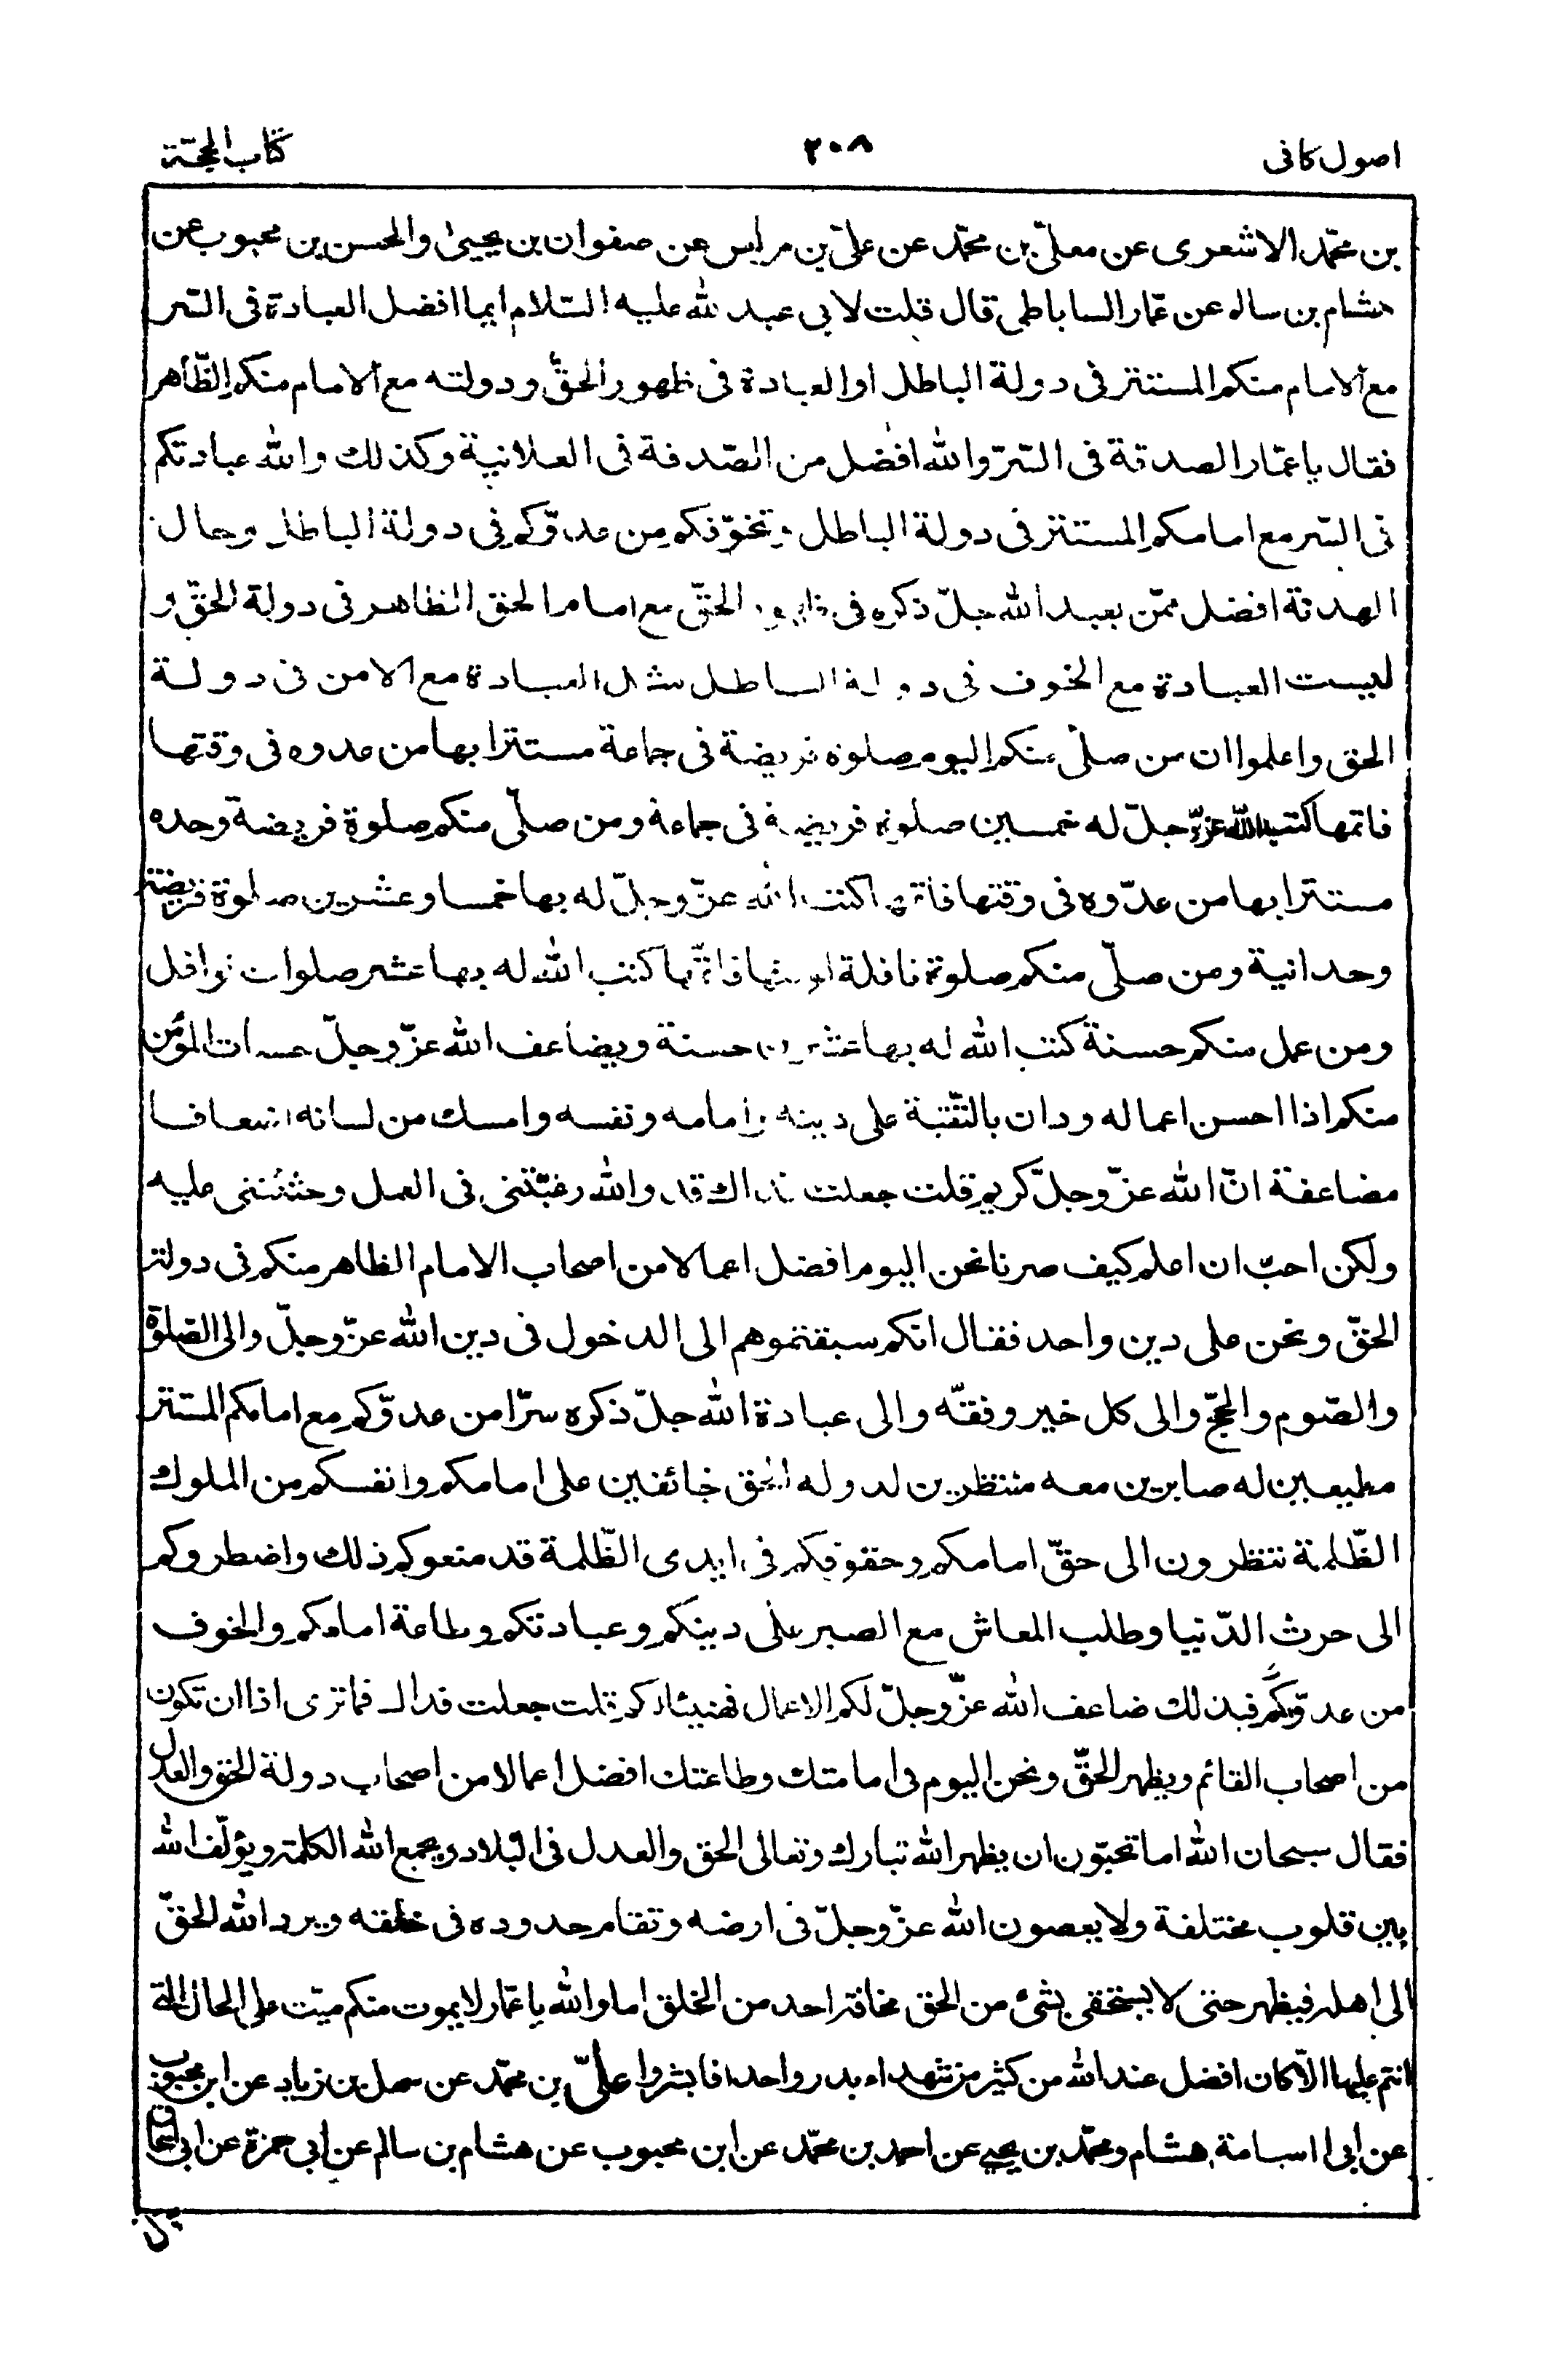 اصول كافى
٢٠٨
كتاب الحجّة
بن محمّد الاشعرى عن معلّى بن محمّد عن علىّ بن مرداس عن صفوان بن يحيىٰ والحسن بن محبوب عن
هشام بن سالم عن عمّار الساباطى قال قلت لابى عبد الله عليه السّلام ايما افضل العبادة فى السّر
مع الامام منكم المستتر فى دولة الباطل او العبادة فى ظهور الحقّ و دولته مع الامام منكم الظّاهر
فقال يا عمّار الصدقة فى السّرّ والله افضل من الصّدقة فى العلانية وكذلك والله عبادتكم
فى السّر مع امامكم المستتر فى دولة الباطل وتخوّفكم من عدوّكم فى دولة الباطل وحال
الهدنة افضل ممّن يعبد الله جلّ ذكره فى ظهور الحقّ مع امام الحق الظاهر فى دولة الحقّ و
ليست العبادة مع الخوف فى دولة الباطل مثل العبادة مع الامن فى دولة
الحق واعلموا ان من صلّى منكم اليوم صلوة فريضة فى جماعة مستترا بها من عدوه فى وقتها
فاتمها كتب الله عزّ وجلّ له خمسين صلوة فريضة فى جماعة ومن صلّى منكم صلوة فريضة وحده
مستترا بها من عدّوه فى وقتها فاتمها كتب الله عزّ وجلّ له بها خمسا وعشرين صلوة فريضة
وحدانية ومن صلّى منكم صلوة نافلة لوقتها فاتمّها كتب الله له بها عشر صلوات نوافل
ومن عمل منكم حسنة كتب الله له بها عشرين حسنة ويضاعف الله عزّ وجلّ حسنات المؤمن
منكم اذا احسن اعماله ودان بالتّقيّة على دينه وامامه ونفسه وامسك من لسانه اضعافا
مضاعفة انّ الله عزّ وجلّ كريم قلت جعلت فداك قد والله رغبّتنى فى العمل وحثثتنى عليه
ولكن احبّ ان اعلم كيف صرنا نحن اليوم افضل اعمالا من اصحاب الامام الظاهر منكم فى دولة
الحقّ ونحن على دين واحد فقال انكم سبقتموهم الى الدخول فى دين الله عزّ وجلّ والى الصّلوة
والصّوم والحجّ والى كل خير وفقّه والى عبادة الله جلّ ذكره سرّا من عدوّكم مع امامكم المستتر
مطيعين له صابرين معه منتظرين لدولة الحق خائفين على امامكم وانفسكم من الملوك
الظّلمة تنظرون الى حقّ امامكم وحقوقكم فى ايدى الظّلمة قد منعوكم ذلك واضطروكم
الى حرث الدّنيا وطلب المعاش مع الصبر على دينكم وعبادتكم وطاعة امامكم والخوف
من عدوّكم فبذلك ضاعف الله عزّ وجلّ لكم الاعمال فهنيئا لكم قلت جعلت فداك فما ترى اذا ان تكون
من اصحاب القائم ويظهر الحقّ ونحن اليوم فى امامتك وطاعتك افضل اعمالا من اصحاب دولة الحق والعدل
فقال سبحان الله اما تحبّون ان يظهر الله تبارك وتعالى الحق والعدل فى البلاد ويجمع الله الكلمة ويؤلّف الله
بين قلوب مختلفة ولا يعصون الله عزّ وجلّ فى ارضه وتقام حدوده فى خلقه ويرد الله الحقّ
الى اهله فيظهر حتى لا يستخفى بشىء من الحق مخافة احد من الخلق اما والله يا عمّار لا يموت منكم ميّت على الحال التى
انتم عليها الّا كان افضل عند الله من كثير من شهداء بدر واحد فابشروا علىّ بن محمّد عن سهل بن زياد عن ابن محبوب
عن ابى اسامة هشام ومحمّد بن يحيى عن احمد بن محمّد عن ابن محبوب عن هشام بن سالم عن ابى حمزة عن ابى اسحاق